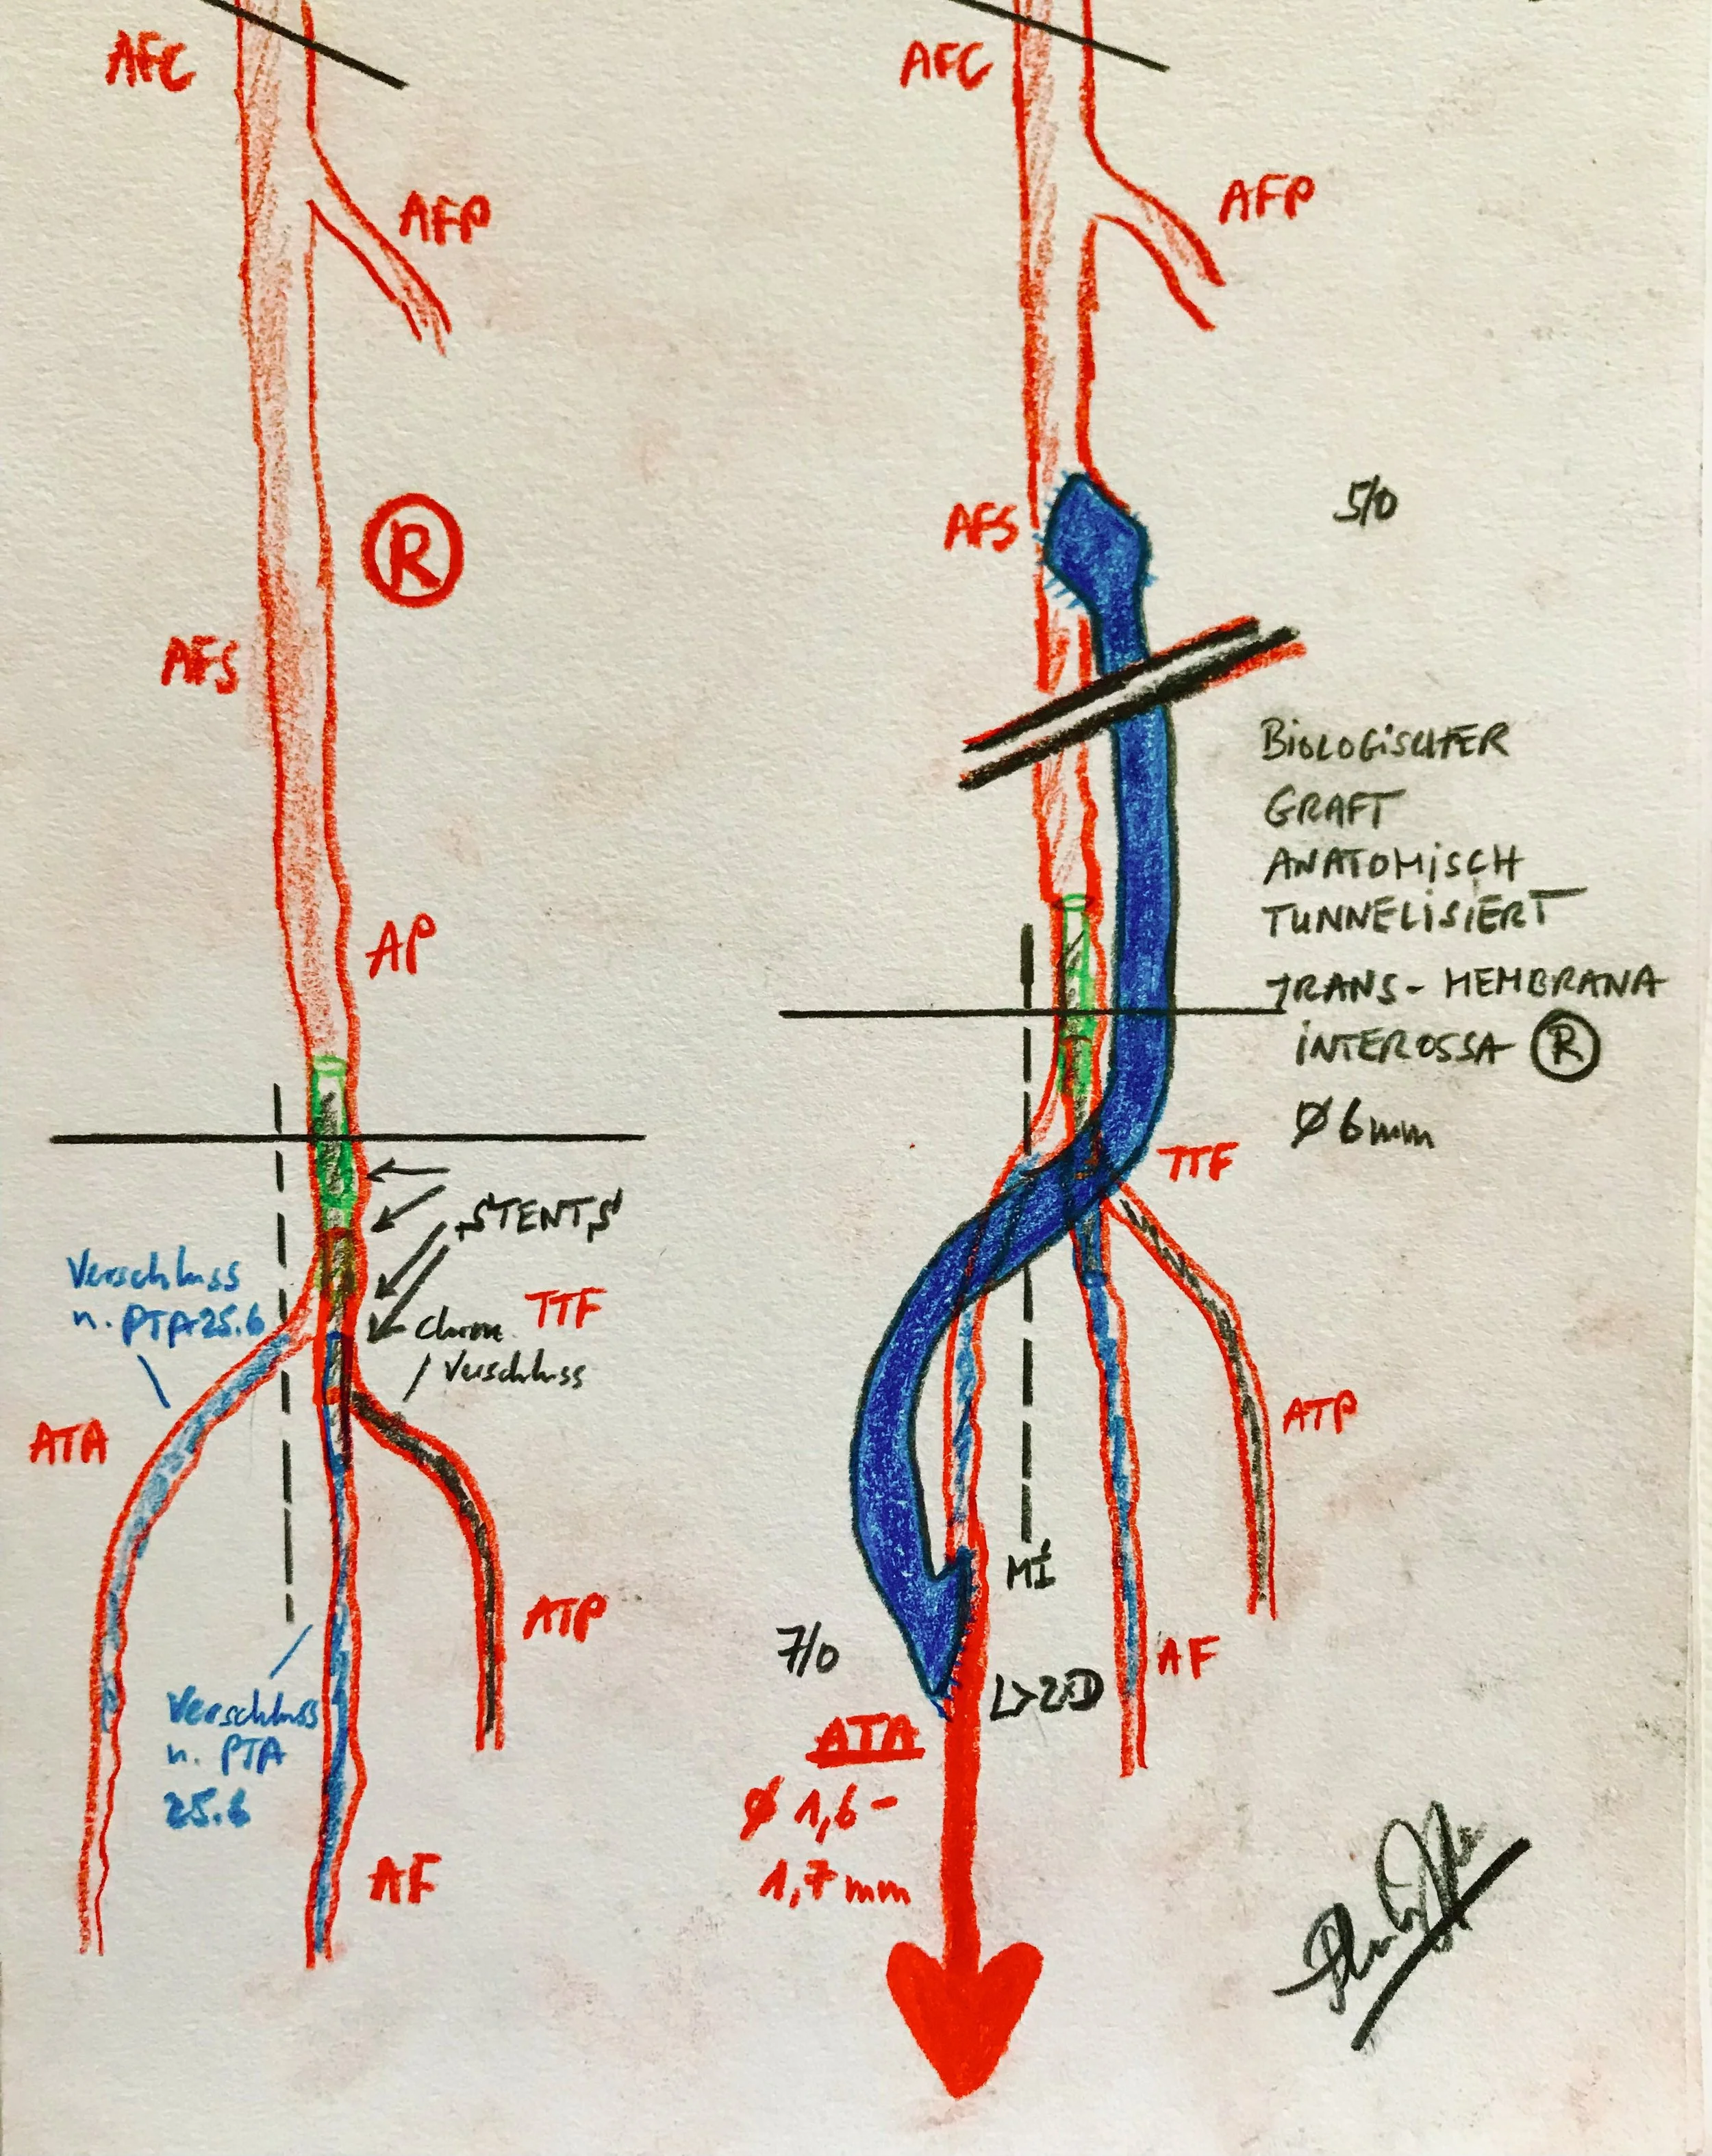 AFC
AFP
R
AFS
AP
STENTS
Verschluss
n. PTA 25.6
TTF
chron.
Verschluss
ATA
ATP
Verschluss
n. PTA
25.6
AF
AFC
AFP
AFS
5/0
BIOLOGISCHER
GRAFT
ANATOMISCH
TUNNELISIERT
TRANS-MEMBRANA
INTEROSSA R
Ø 6mm
TTF
ATP
MI
7/0
AF
L>2D
ATA
Ø 1,6-
1,7mm